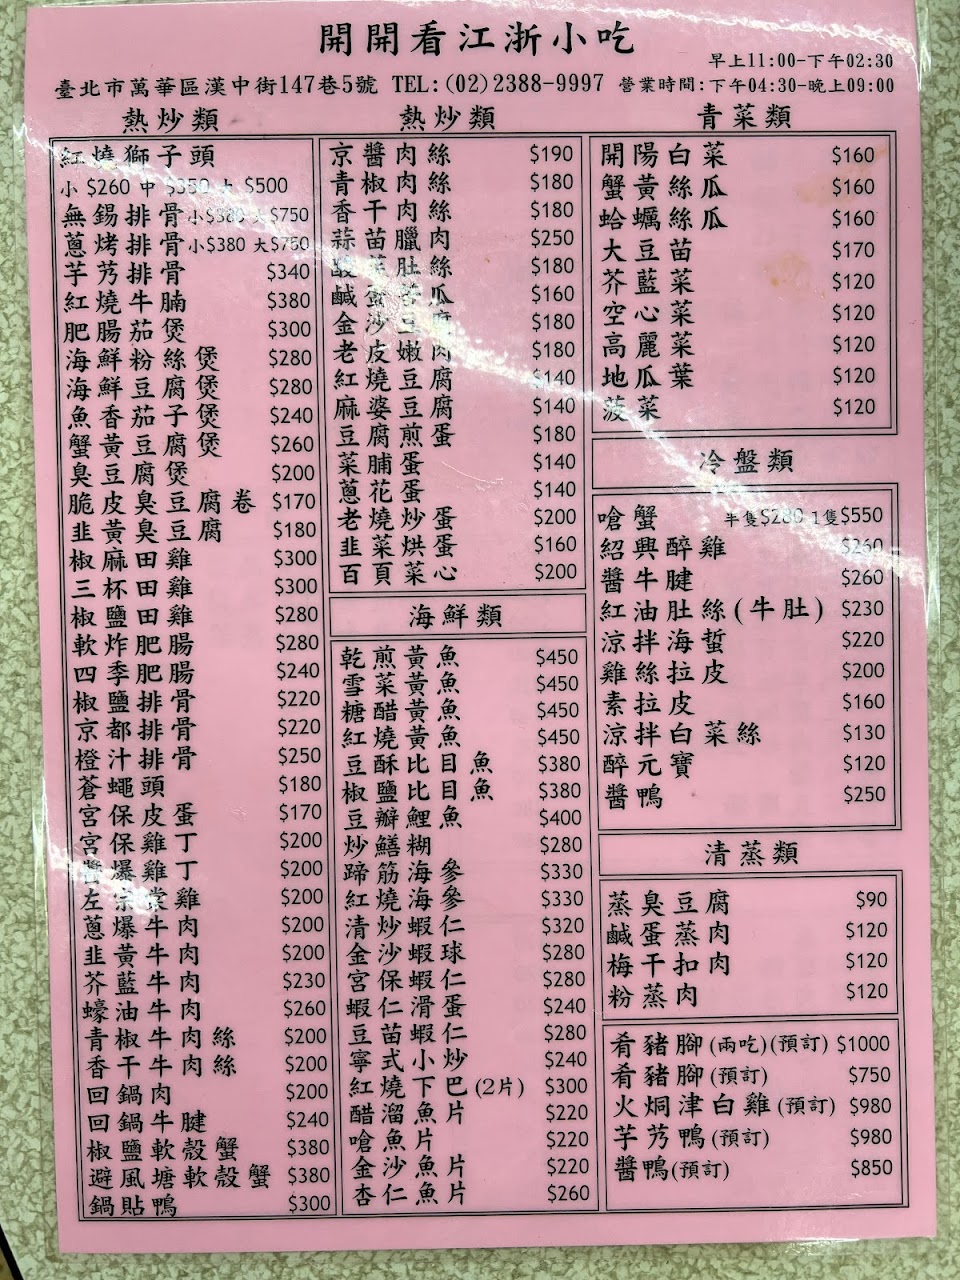 開開看江浙小吃
早上11:00-下午02:30
臺北市萬華區漢中街147巷5號 TEL:(02)2388-9997 營業時間:下午04:30-晚上09:00
熱炒類
紅燒獅子頭
小 $260 中 $350 大 $500
無錫排骨 小$380 大$750
蔥烤排骨 小$380 大$750
芋艿排骨 $340
紅燒牛腩 $380
肥腸茄煲 $300
海鮮粉絲煲 $280
海鮮豆腐煲 $280
魚香茄子煲 $240
蟹黃豆腐煲 $260
臭豆腐煲 $200
脆皮臭豆腐卷 $170
韭黃臭豆腐 $180
椒麻田雞 $300
三杯田雞 $300
椒鹽田雞 $280
軟炸肥腸 $280
四季肥腸 $240
椒鹽排骨 $220
京都排骨 $220
橙汁排骨 $250
蒼蠅頭 $180
宮保皮蛋 $170
宮保雞丁 $200
醬爆雞丁 $200
左宗棠雞 $200
蔥爆牛肉 $200
韭黃牛肉 $200
芥藍牛肉 $230
蠔油牛肉 $260
青椒牛肉絲 $200
香干牛肉絲 $200
回鍋肉 $200
回鍋牛腱 $240
椒鹽軟殼蟹 $380
避風塘軟殼蟹 $380
鍋貼鴨 $300
熱炒類
京醬肉絲 $190
青椒肉絲 $180
香干肉絲 $180
蒜苗臘肉 $250
酸菜肚絲 $180
鹹蛋苦瓜 $160
金沙豆腐 $180
老皮嫩肉 $180
紅燒豆腐 $140
麻婆豆腐 $140
豆腐煎蛋 $180
菜脯蛋 $140
蔥花蛋 $140
老燒炒蛋 $200
韭菜烘蛋 $160
百頁菜心 $200
海鮮類
乾煎黃魚 $450
雪菜黃魚 $450
糖醋黃魚 $450
紅燒黃魚 $450
豆酥比目魚 $380
椒鹽比目魚 $380
豆瓣鯉魚 $400
炒鱔糊 $280
蹄筋海參 $330
紅燒海參 $330
清炒蝦仁 $320
金沙蝦球 $280
宮保蝦仁 $280
蝦仁滑蛋 $240
豆苗蝦仁 $280
寧式小炒 $240
紅燒下巴(2片) $300
醋溜魚片 $220
嗆魚片 $220
金沙魚片 $220
杏仁魚片 $260
青菜類
開陽白菜 $160
蟹黃絲瓜 $160
蛤蠣絲瓜 $160
大豆苗 $170
芥藍菜 $120
空心菜 $120
高麗菜 $120
地瓜葉 $120
菠菜 $120
冷盤類
嗆蟹 半隻$280 1隻$550
紹興醉雞 $260
醬牛腱 $260
紅油肚絲(牛肚) $230
涼拌海蜇 $220
雞絲拉皮 $200
素拉皮 $160
涼拌白菜絲 $130
醉元寶 $120
醬鴨 $250
清蒸類
蒸臭豆腐 $90
鹹蛋蒸肉 $120
梅干扣肉 $120
粉蒸肉 $120
肴豬腳(兩吃)(預訂) $1000
肴豬腳(預訂) $750
火焗津白雞(預訂) $980
芋艿鴨(預訂) $980
醬鴨(預訂) $850